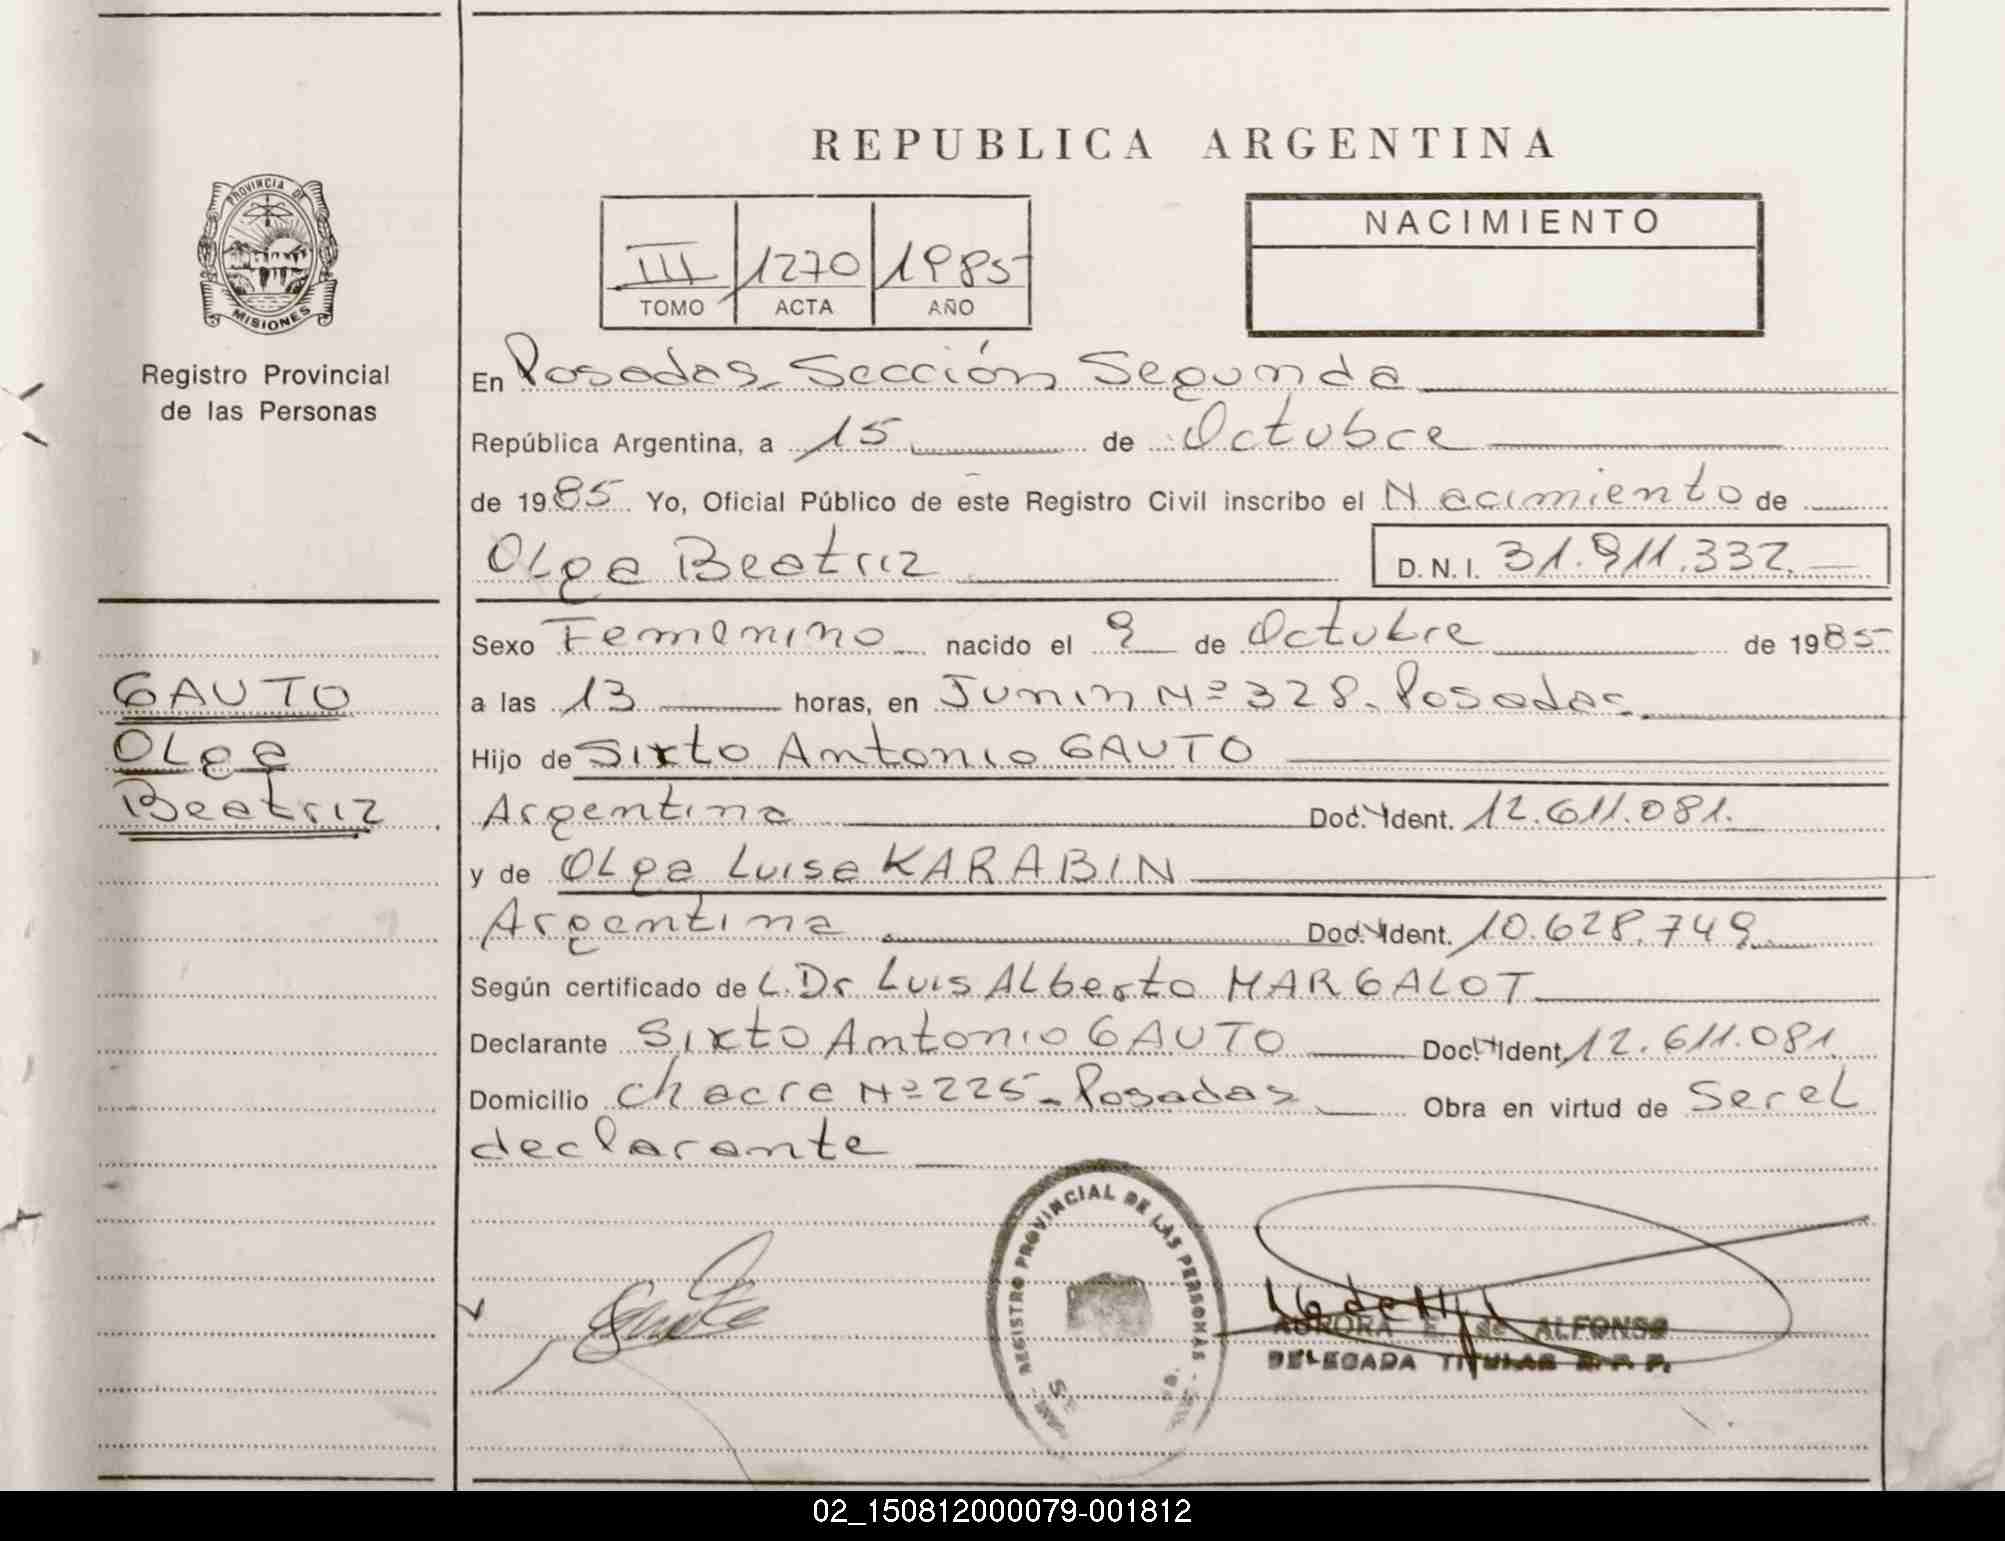 REPUBLICA ARGENTINA
PROVINCIA DE
MISIONES
Registro Provincial
de las Personas
III 1270 1985
TOMO ACTA AÑO
NACIMIENTO
En Posadas, Sección Segunda
República Argentina, a 15 de Octubre
de 1985 Yo, Oficial Público de este Registro Civil inscribo el Nacimiento de
Olga Beatriz D.N.I. 31.911.332.
Sexo Femenino nacido el 9 de Octubre de 1985
GAUTO
Olga
Beatriz
a las 13 horas, en Junin Nº 328. Posadas
Hijo de Sixto Antonio GAUTO
Argentina Doc. Ident. 12.611.081.
y de Olga Luisa KARABIN
Argentina Doc. Ident. 10.628.749.
Según certificado de L. Dr Luis Alberto MARGALOT
Declarante Sixto Antonio GAUTO Doc. Ident. 12.611.081
Domicilio Chacra Nº 225. Posadas Obra en virtud de Ser el
declarante
REGISTRO PROVINCIAL DE LAS PERSONAS
AURORA E. de ALFONSO
DELEGADA TITULAR R. P. P.
02_150812000079-001812